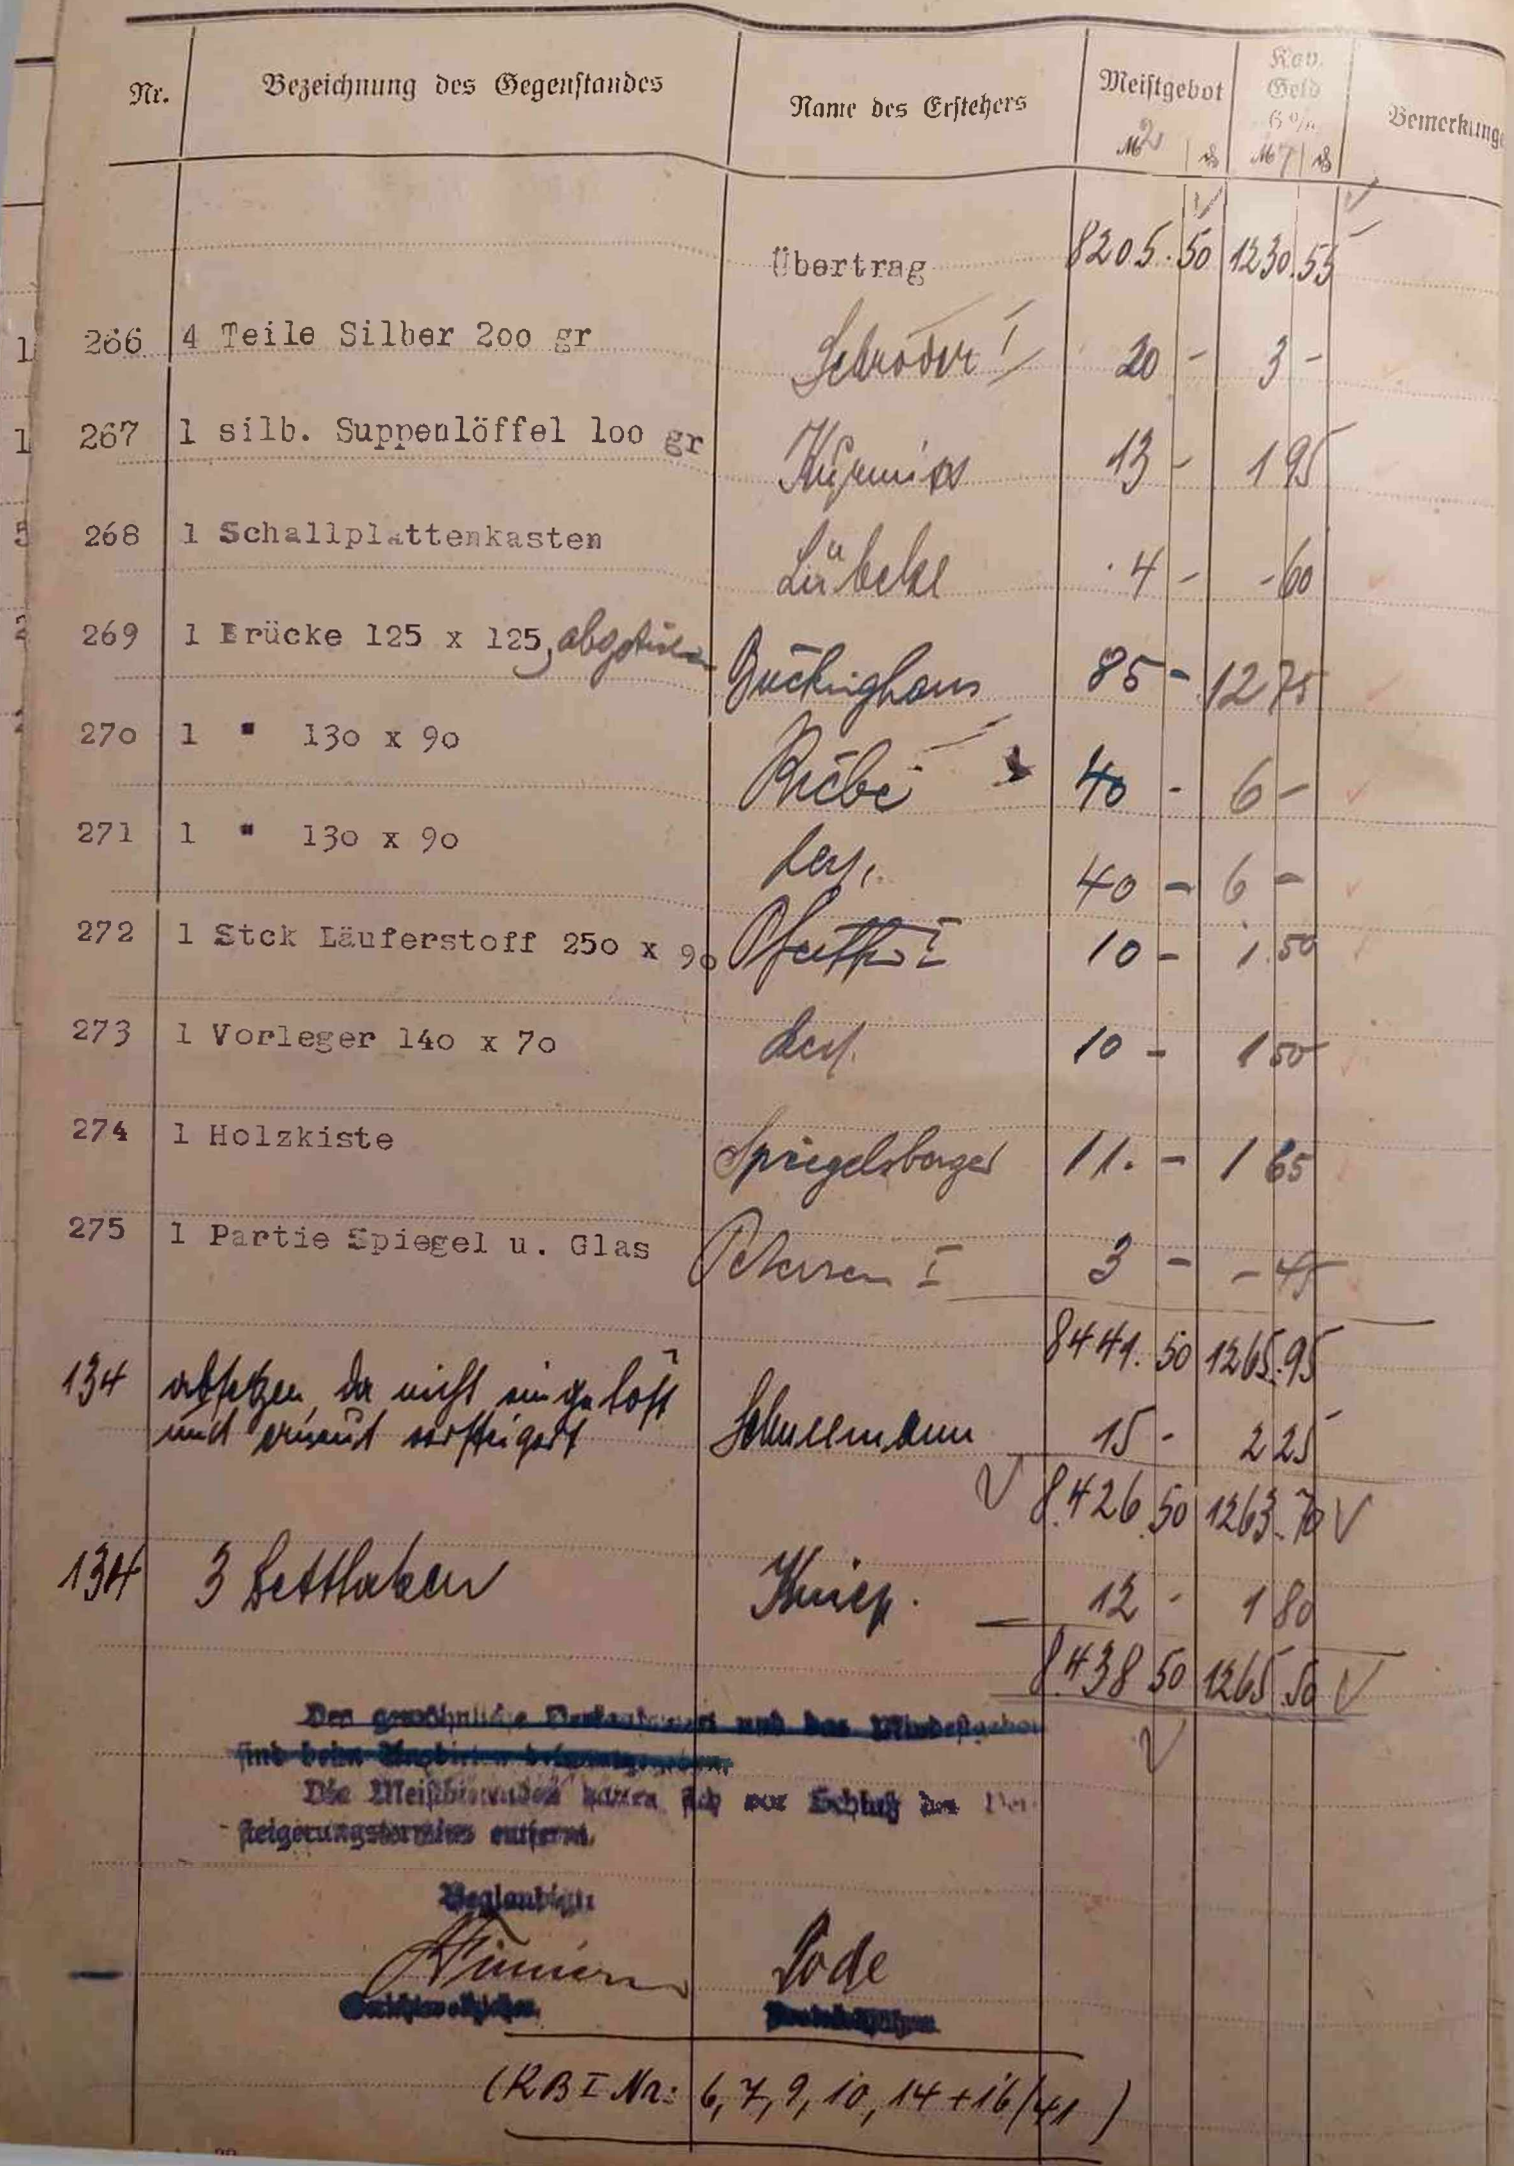 Nr. Bezeichnung des Gegenstandes Name des Erstehers Meistgebot Kav. Geld Bemerkung
Übertrag 8205.50 1230.55
266 4 Teile Silber 200 gr Schröder I 20 - 3 -
267 1 silb. Suppenlöffel 100 gr 13 - 1 95
268 1 Schallplattenkasten Lübcke 4 - - 60
269 1 Brücke 125 x 125, Bückinghaus 85 - 12 75
270 1 " 130 x 90 Riebe 40 - 6 -
271 1 " 130 x 90 ders. 40 - 6 -
272 1 Stck Läuferstoff 250 x 90 I 10 - 1.50
273 1 Vorleger 140 x 70 ders. 10 - 1 50
274 1 Holzkiste Spiegelsberger 11. - 1 65
275 1 Partie Spiegel u. Glas Petersen I 3 - - 45
8441.50 1265.95
134 absetzen, da nicht eingelöst
und erneut versteigert Schneemann 15 - 2 25
8.426.50 1263.70
134 3 Bettlaken Kniep. 12 - 1 80
8.438 50 1265 50
Das gewöhnliche und das Mindestgebot
sind beim
Die Meistbietenden hatten sich vor Schluß des Ver-
steigerungstermins entfernt.
Beglaubigt:
Bode
Gerichtsvollzieher.
(KB I Nr: 6, 7, 9, 10, 14 + 16/41)